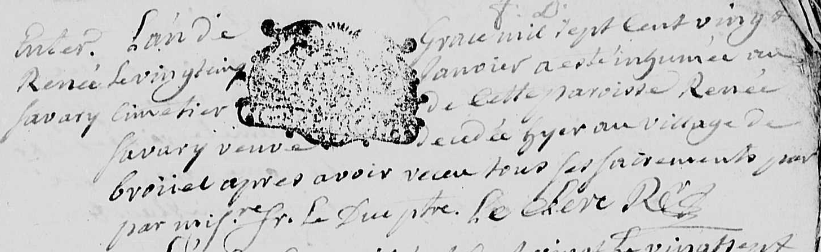 Enter. L'an de Grace mil sept Cent vingt
Renée Le vingt cinq Janvier a esté inhumée au
Savary Cimetier de Cette paroisse Renée
Savary veuve decedée hyer au village de
broüel apres avoir receu tous ses sacrements par
par mis.re Fr. Le Duc ptre. Le Clerc R.r